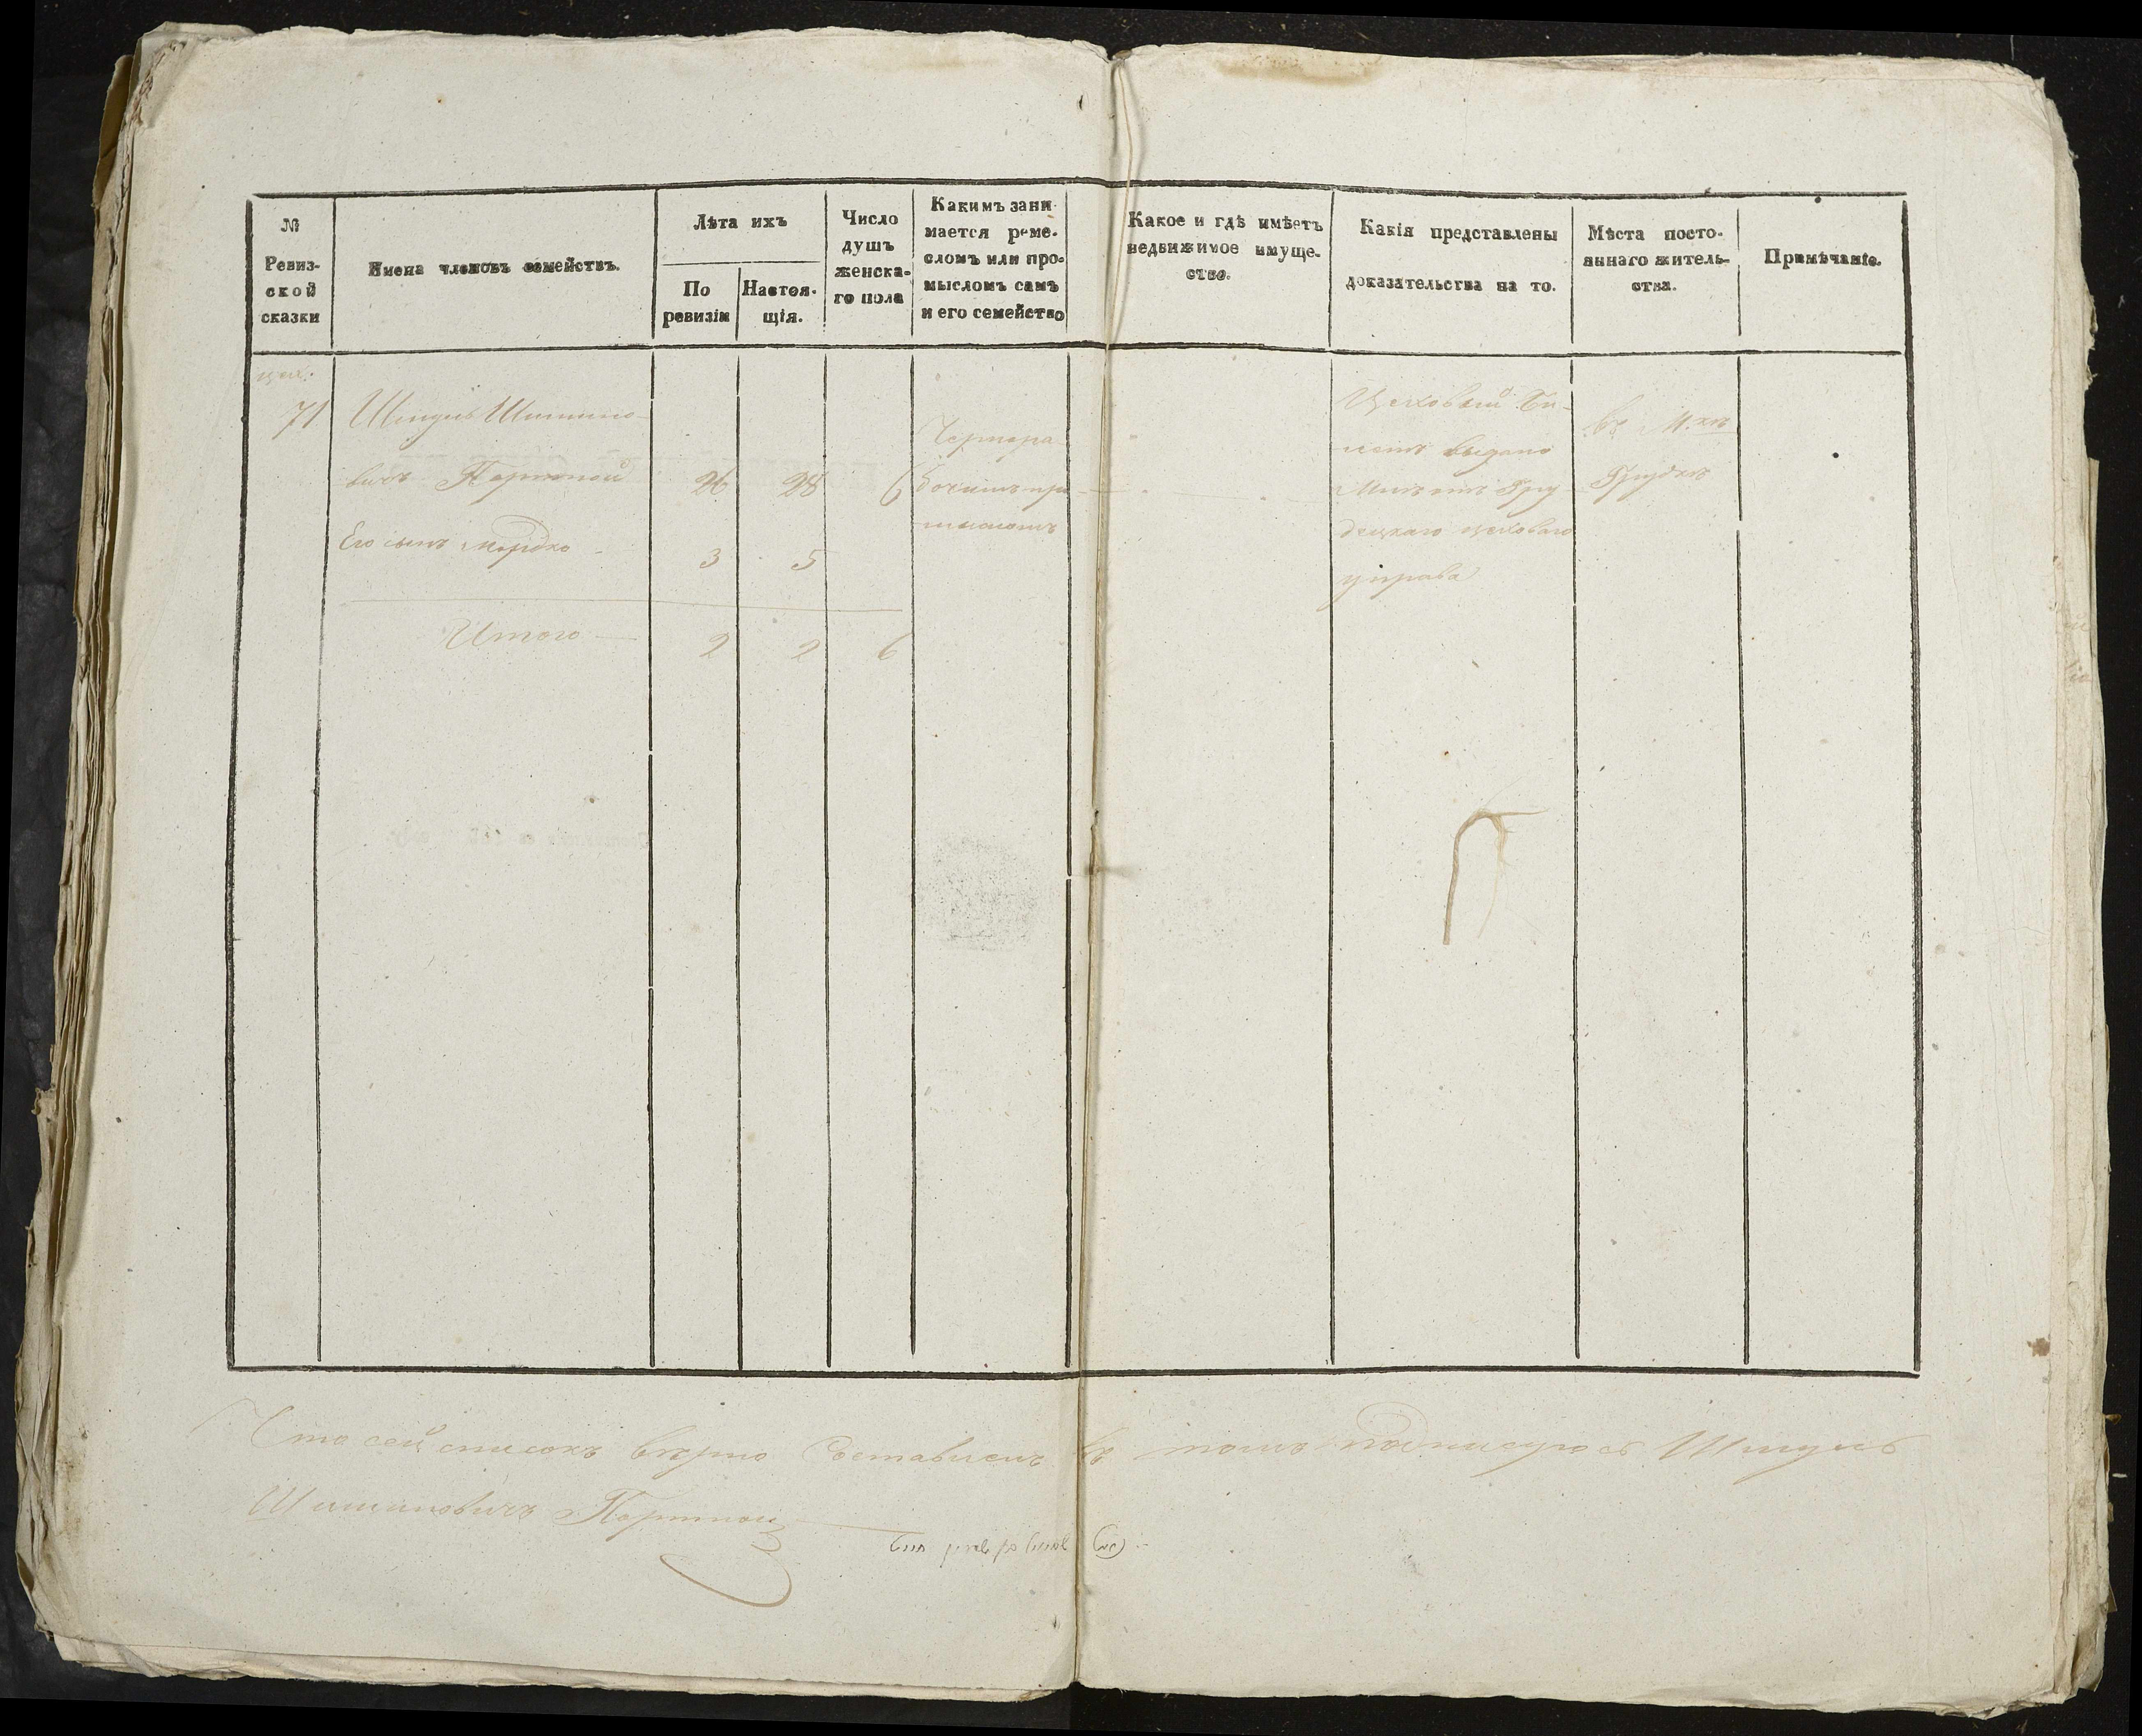 №
Ревиз-
ской
сказки
Имена членовъ семействъ.
Лѣта ихъ
По
ревизіи
Настоя-
щія.
Число
душъ
женска-
го пола
Какимъ зани-
мается реме-
сломъ или про-
мысломъ самъ
и его семейство
Какое и гдѣ имѣетъ
недвижимое имуще-
ство.
Какія представлены
доказательства на то.
Мѣста посто-
яннаго житель-
ства.
Примѣчаніе.
цех:
71
Шмуль Шимано-
вичъ Портной 26 28 6
Его сынъ Мордко 3 5
Итого — 2 2 6
Чернора-
бочимъ про-
мысломъ
Цеховый Би-
летъ выдано
отъ Гру-
децкаго цеховаго
управа
въ М.
Грудкъ
Что сей списокъ вѣрно Составленъ въ томъ подписуюсь Шмуль
Шимановичъ Портной